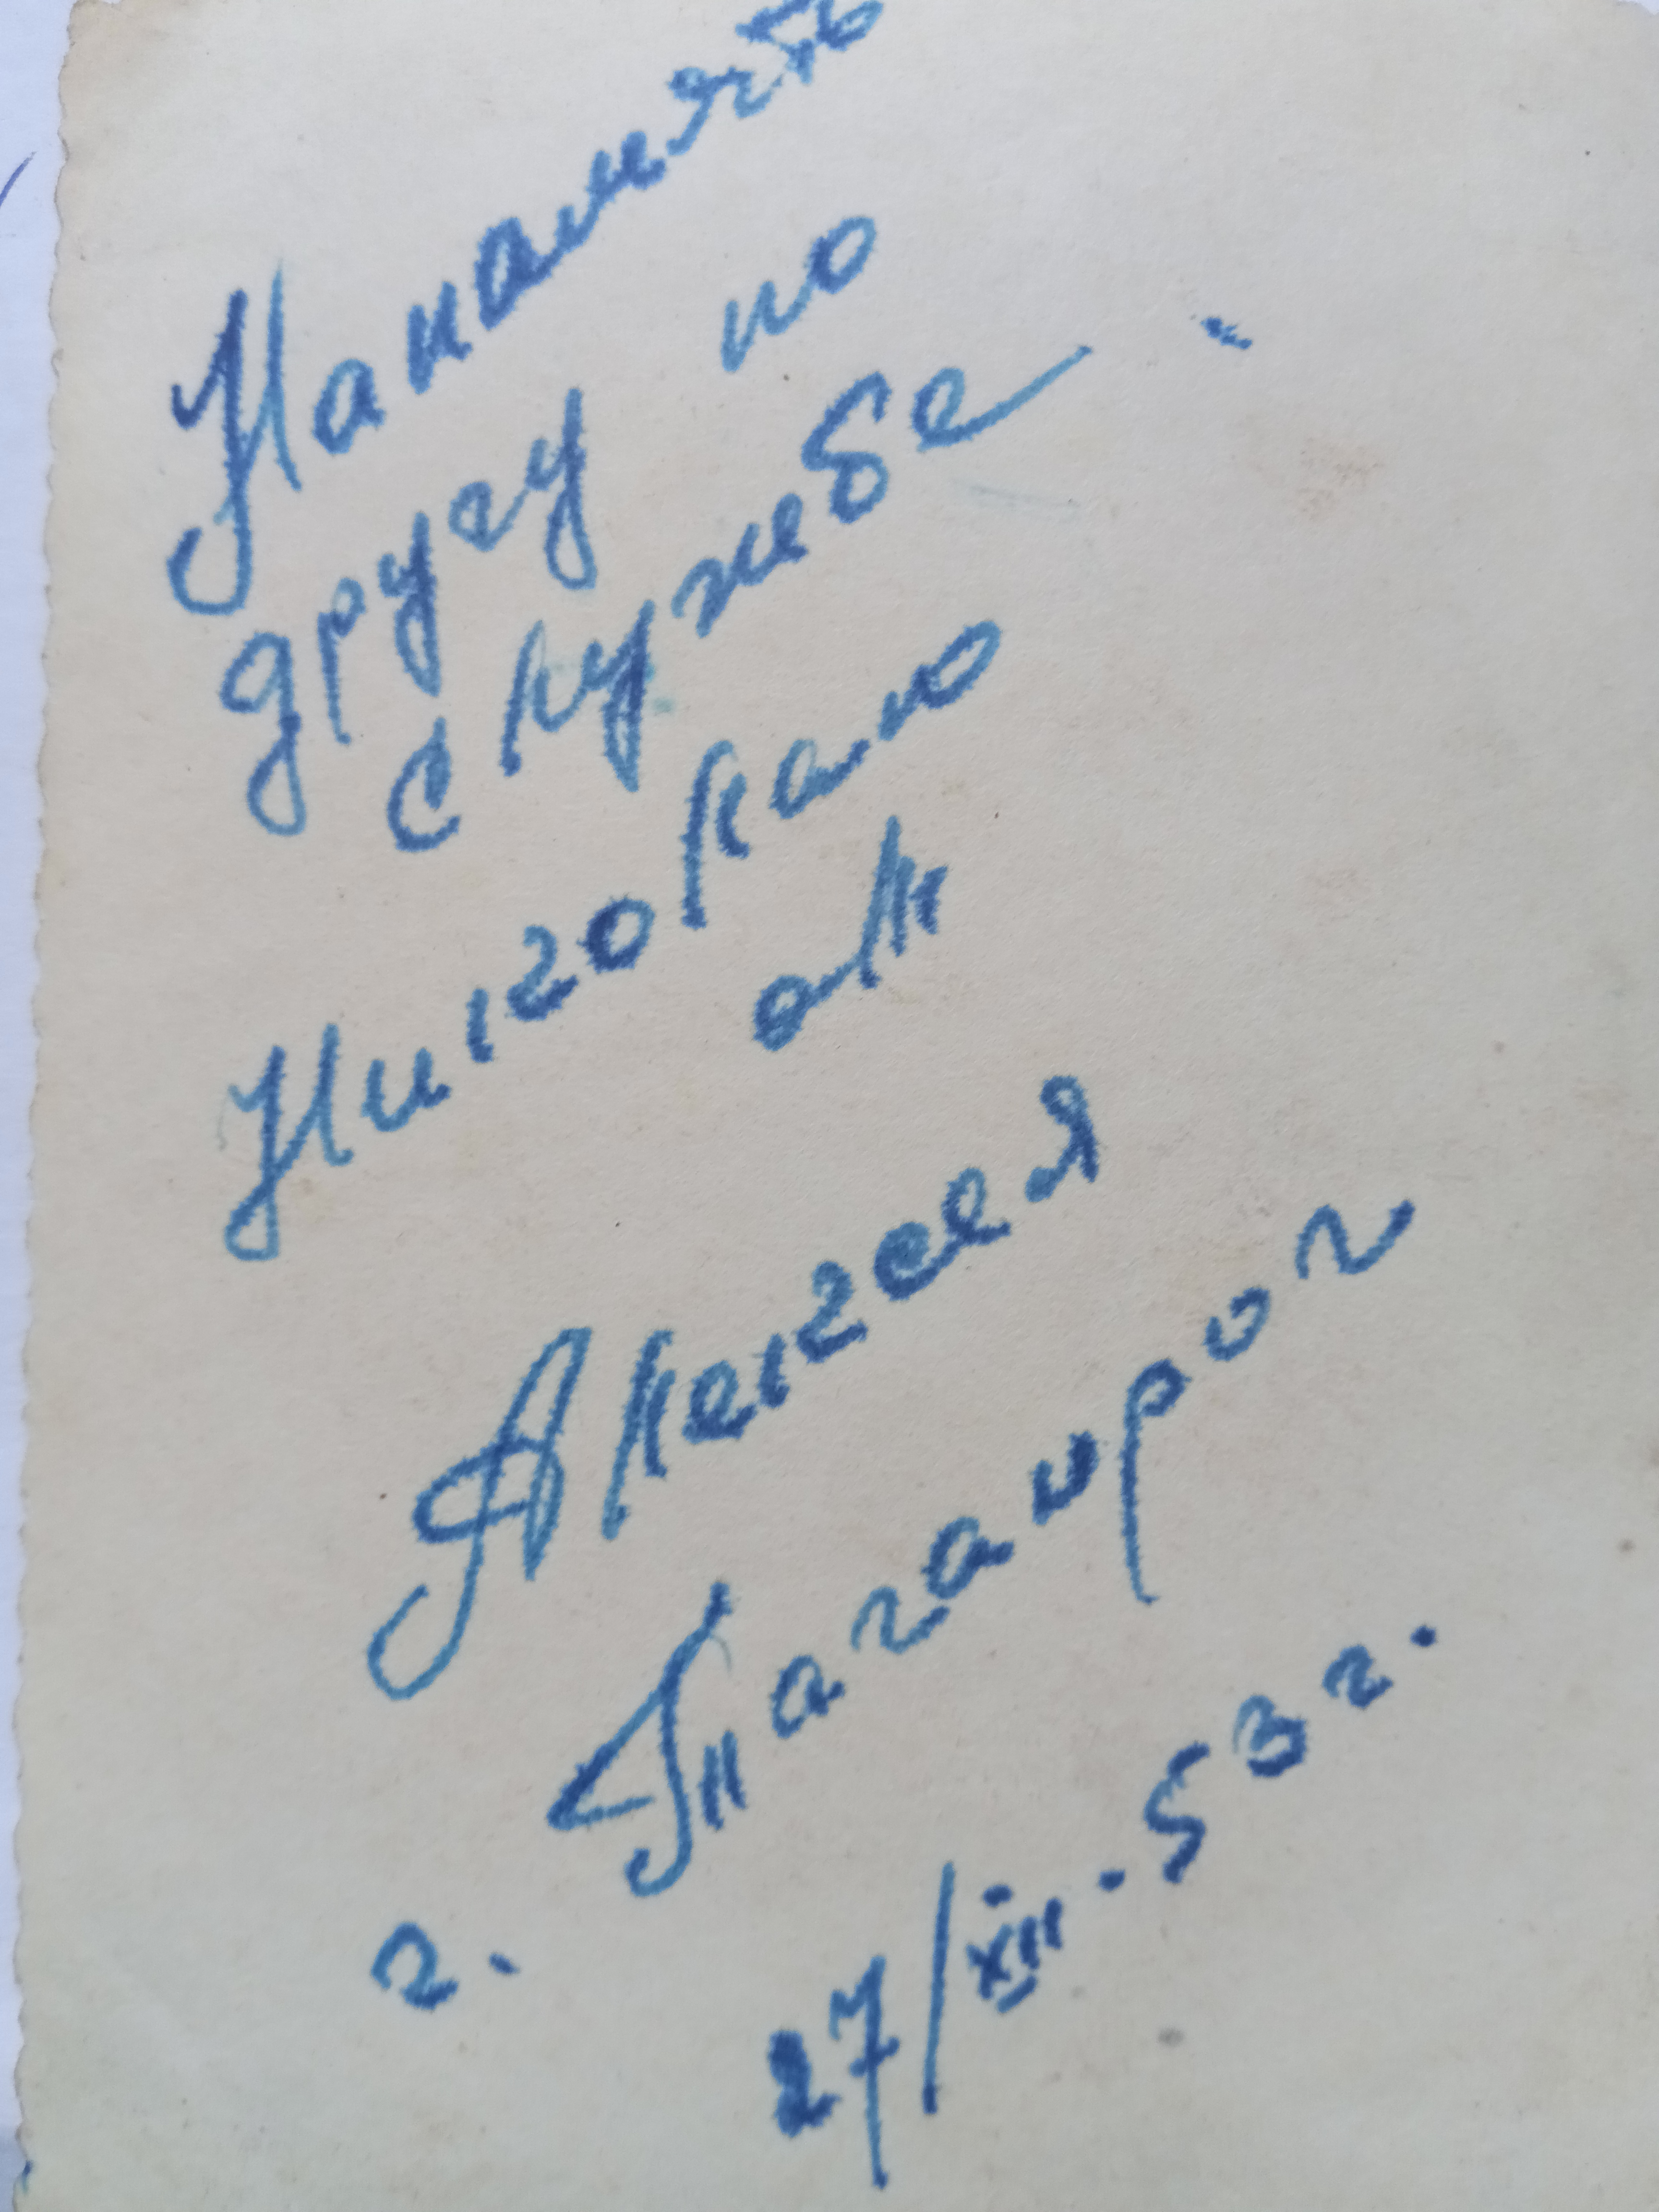 На память
другу по
службе
Николаю
от
Алексея
г. Таганрог
27/XII.53г.